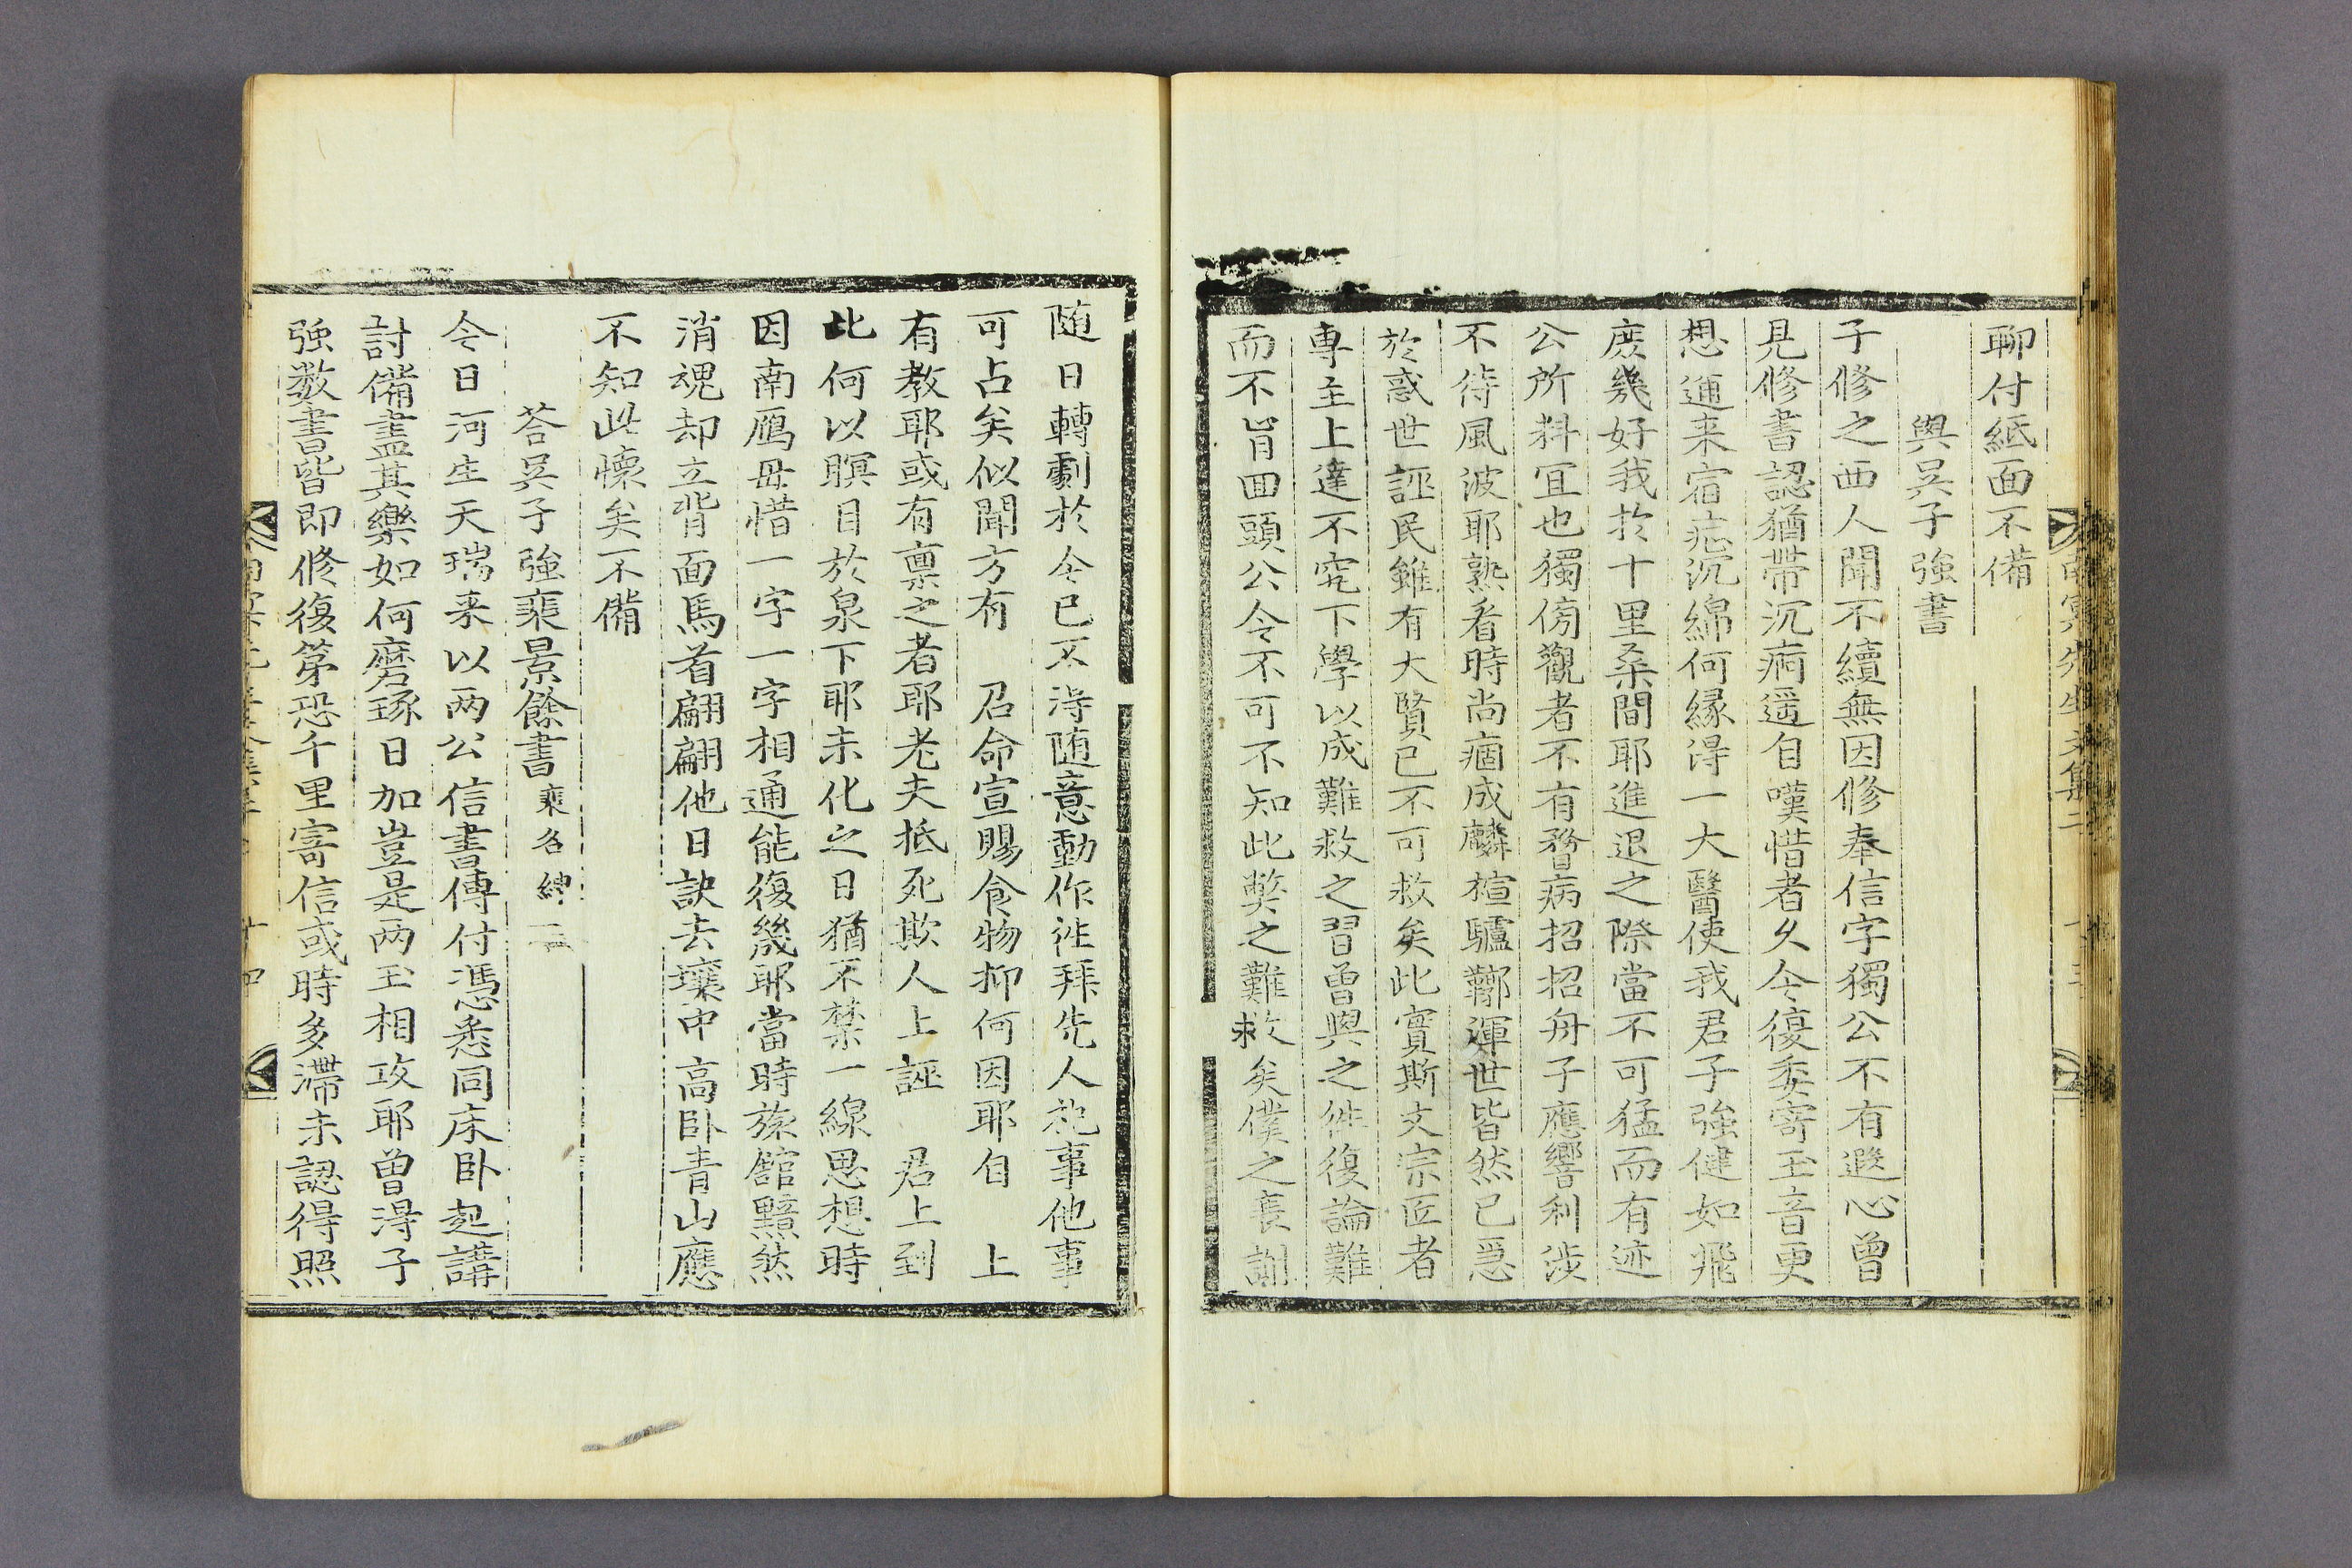 聊付紙面不備
與吳子強書
子修之西人聞不續無因修奉信字獨公不有遐心曾
見修書認猶帶沉痾遥自嘆惜者久今復委寄玉音更
想邇来宿疝沉綿何縁得一大醫使我君子強健如飛
庶幾好我於十里桑間耶進退之際當不可猛而有迹
公所料冝也獨傍觀者不有瞀病招招舟子應響利涉
不待風波耶熟看時尚痼成麟楦驢鞹渾世皆然已急
於惑世誣民雖有大賢已不可救矣此實斯文宗匠者
専主上達不究下學以成難救之習曾與之徃復論難
而不肯回頭公今不可不知此弊之難救矣僕之衰謝
南冥先生文集二
随日轉劇於今已不得随意動作徃拜先人祀事他事
可占矣似聞方有 召命宣賜食物抑何因耶自 上
有教耶或有禀之者耶老夫抵死欺人上誣 君上到
此何以瞑目於泉下耶未化之日猶不禁一線思想時
因南鴈毋惜一字一字相通能復幾耶當時旅舘黯然
消魂却立背面馬首翩翩他日訣去壤中高卧青山應
不知此懐矣不備
荅吳子強裵景餘書 裵名紳
今日河生天瑞来以两公信書傳付憑悉同床卧起講
討備盡其樂如何磨琢日加豈是两玉相攻耶曾淂子
強数書皆即修復第恐千里寄信或時多滯未認得照
十四